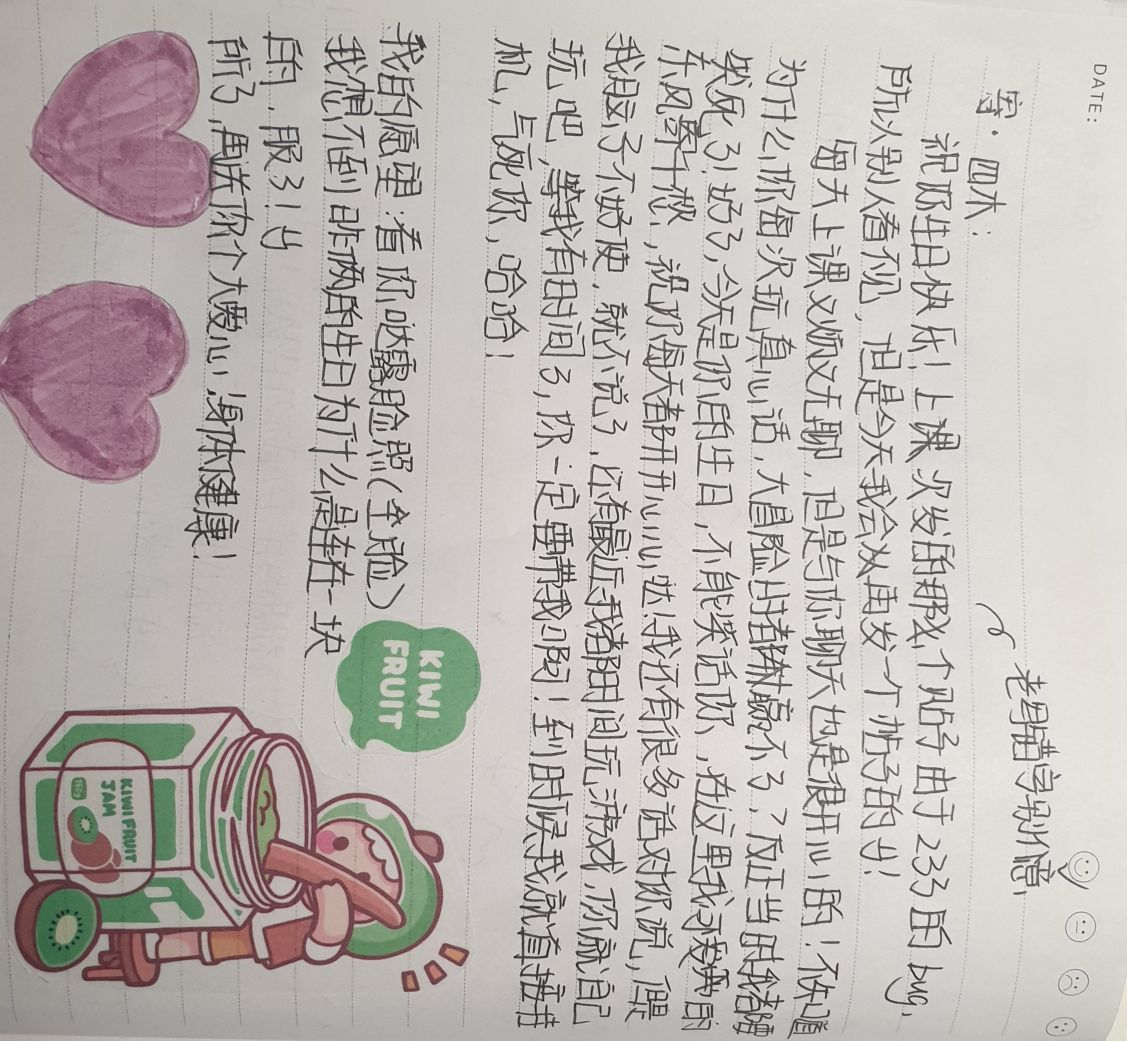 DATE:
老猫字别介意
寄·四木:
祝你生日快乐!上课次发的那个贴子由于233的bug,
所以别人看不见,但是今天我会从再发一个帖子的也!
每天上课又烦又无聊,但是与你聊天也是很开心的!不知道
为什么你每次玩真心话,大冒险时都赢不了,?反正当时我都
笑死了!好了,今天是你的生日,不能笑话你,在这里我
祝你每天都开开心心哒!我还有很多话对你说,但是
我脑子不好使,就不说了,还有最近我有时间玩游戏,你就自己
玩吧,等我有时间了,你一定要带我啊!到时候我就直接
机,气死你,哈哈!
我的愿望:看你哒露脸照(全脸)
我想不到咱俩的生日为什么是连在一块
的,服了!也
所了,再送你个大爱心,身体健康!
KIWI
FRUIT
KIWI FRUIT
JAM
150g